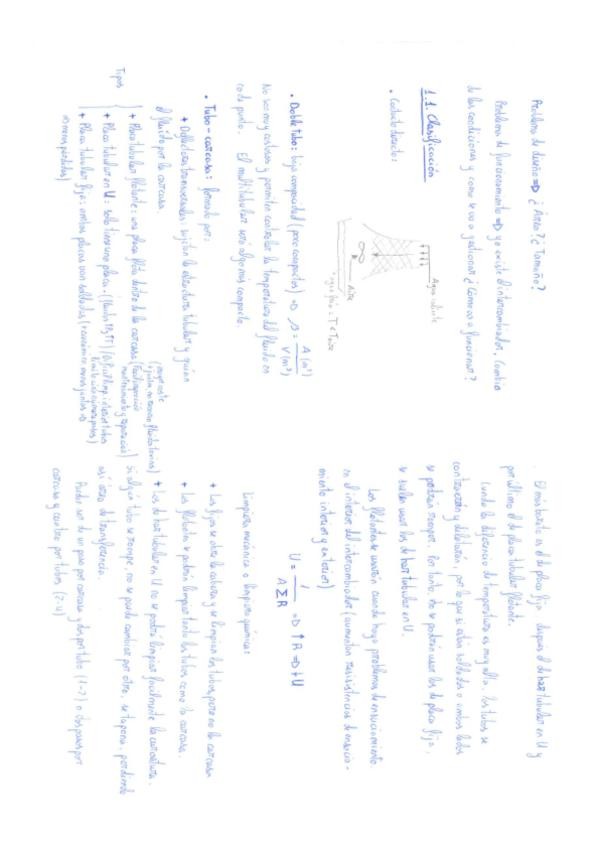 Problema de diseño ⇒ ¿Área? ¿Tamaño?
Problema de funcionamiento ⇒ ya existe el intercambiador. Cambio
de las condiciones y como se va a gestionar ¿Cómo va a funcionar?
1.1. Clasificación
• Contacto directo:
Agua caliente
Aire
• Doble tubo: baja compacidad (poco compactos) ⇒ β = A (m²) / V (m³)
No son muy costosos y permiten controlar la temperatura del fluido en
cada punto. El multitubular será algo más compacto.
• Tubo-carcasa: formado por:
+ Deflectores transversales: sujetan la estructura tubular y guían
el fluido por la carcasa.
Tipos
+ Placa tubular flotante: una placa flota dentro de la carcasa
+ Placa tubular en U: solo tiene una placa.
+ Placa tubular fija: ambas placas van soldadas
⇒ menos pérdidas)
• El más barato es el de placa fija, después el de haz tubular en U y
por último el de placa tubular flotante.
Cuando la diferencia de temperatura es muy alta, los tubos se
contraerán y dilatarán, por lo que si están soldados a ambos lados
se podrían romper. Por tanto, no se podrán usar los de placa fija,
se suelen usar los de haz tubular en U.
Los flotantes se usarán cuando haya problemas de ensuciamiento
en el interior del intercambiador (aumentan resistencias de ensucia-
miento interior y exterior)
U = / A ΣR ⇒ ↑R ⇒ ↓U
Limpieza mecánica o limpieza química:
+ Los fijos se abre la cabeza y se limpian los tubos pero no la carcasa
+ Los flotantes se podrán limpiar tanto los tubos como la carcasa.
+ Los de haz tubular en U no se podrá limpiar fácilmente la curvatura.
Si algún tubo se rompe, no se puede cambiar por otro, se tapona, perdiendo
así área de transferencia.
Pueden ser de un paso por carcasa y dos por tubo (1-2) o dos pasos por
carcasa y cuatro por tubos (2-4)